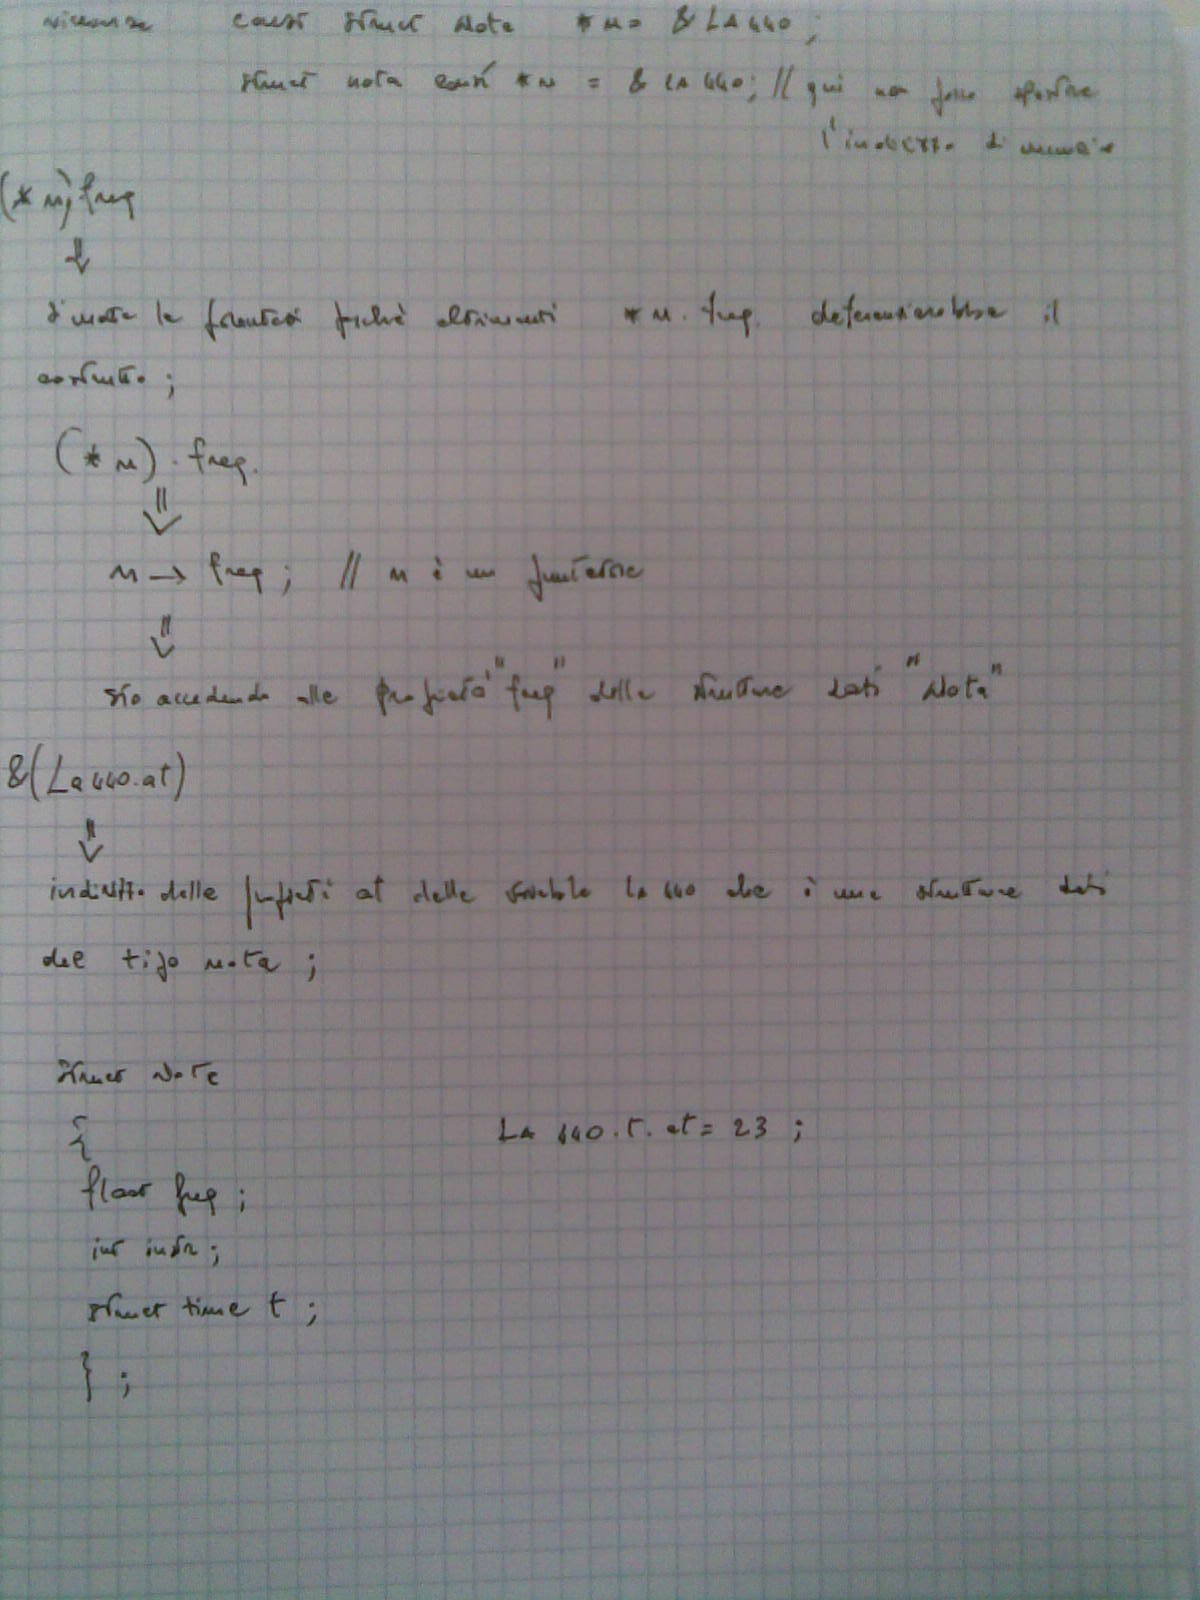 const struct Nota *n = &LA440;
struct nota const *n = &LA440; // qui non posso spostare
l'indirizzo di memoria
(*n).freq
⇓
si mette le parentesi perchè altrimenti *n.freq. il
costrutto;
(*n).freq.
⇓
n → freq; // n è un puntatore
⇓
sto accedendo alla proprietà "freq" della struttura dati "Nota"
&(La440.at)
⇓
indirizzo della proprietà at della variabile la440 che è una struttura dati
del tipo nota;
struct Nota
{
LA440.t.at = 23;
float freq;
int instr;
struct time t;
};